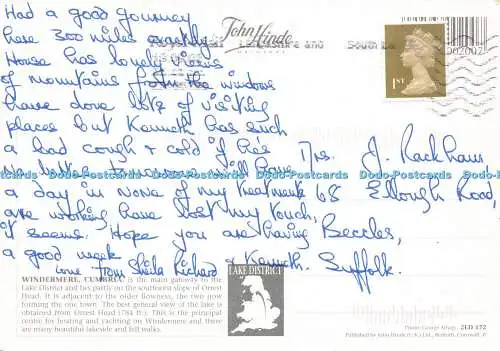 Had a good journey
here 300 miles exactly
House has lovely views
of mountains from the windows
have done lots of visiting
places but Kenneth has such
a bad cough & cold if he's
no better tomorrow will have
a day in none of my treatments
are working have lost my touch,
it seems. Hope you are having
a good week
love from Sheila Richard & Kenneth.
John Hinde
ORIGINAL
LANCASHIRE and SOUTH LA
002002
1ST
Mrs. J. Rackham
68 Ellough Road,
Beccles,
Suffolk.
WINDERMERE, CUMBRIA: is the main gateway to the
Lake District and lies on the southwest slope of Orrest
Head. It is adjacent to the older Bowness, the two now
forming the one town. The best general view of the lake is
obtained from Orrest Head (784 ft.). This is the principal
centre for boating and yachting on Windermere and there
are many beautiful lakeside and fell walks.
LAKE DISTRICT
2LD 172
Published by John Hinde (U.K.) Ltd., Redruth, Cornwall.
Dodo-Postcards Dodo-Postcards Dodo-Postcards Dodo-Postcards